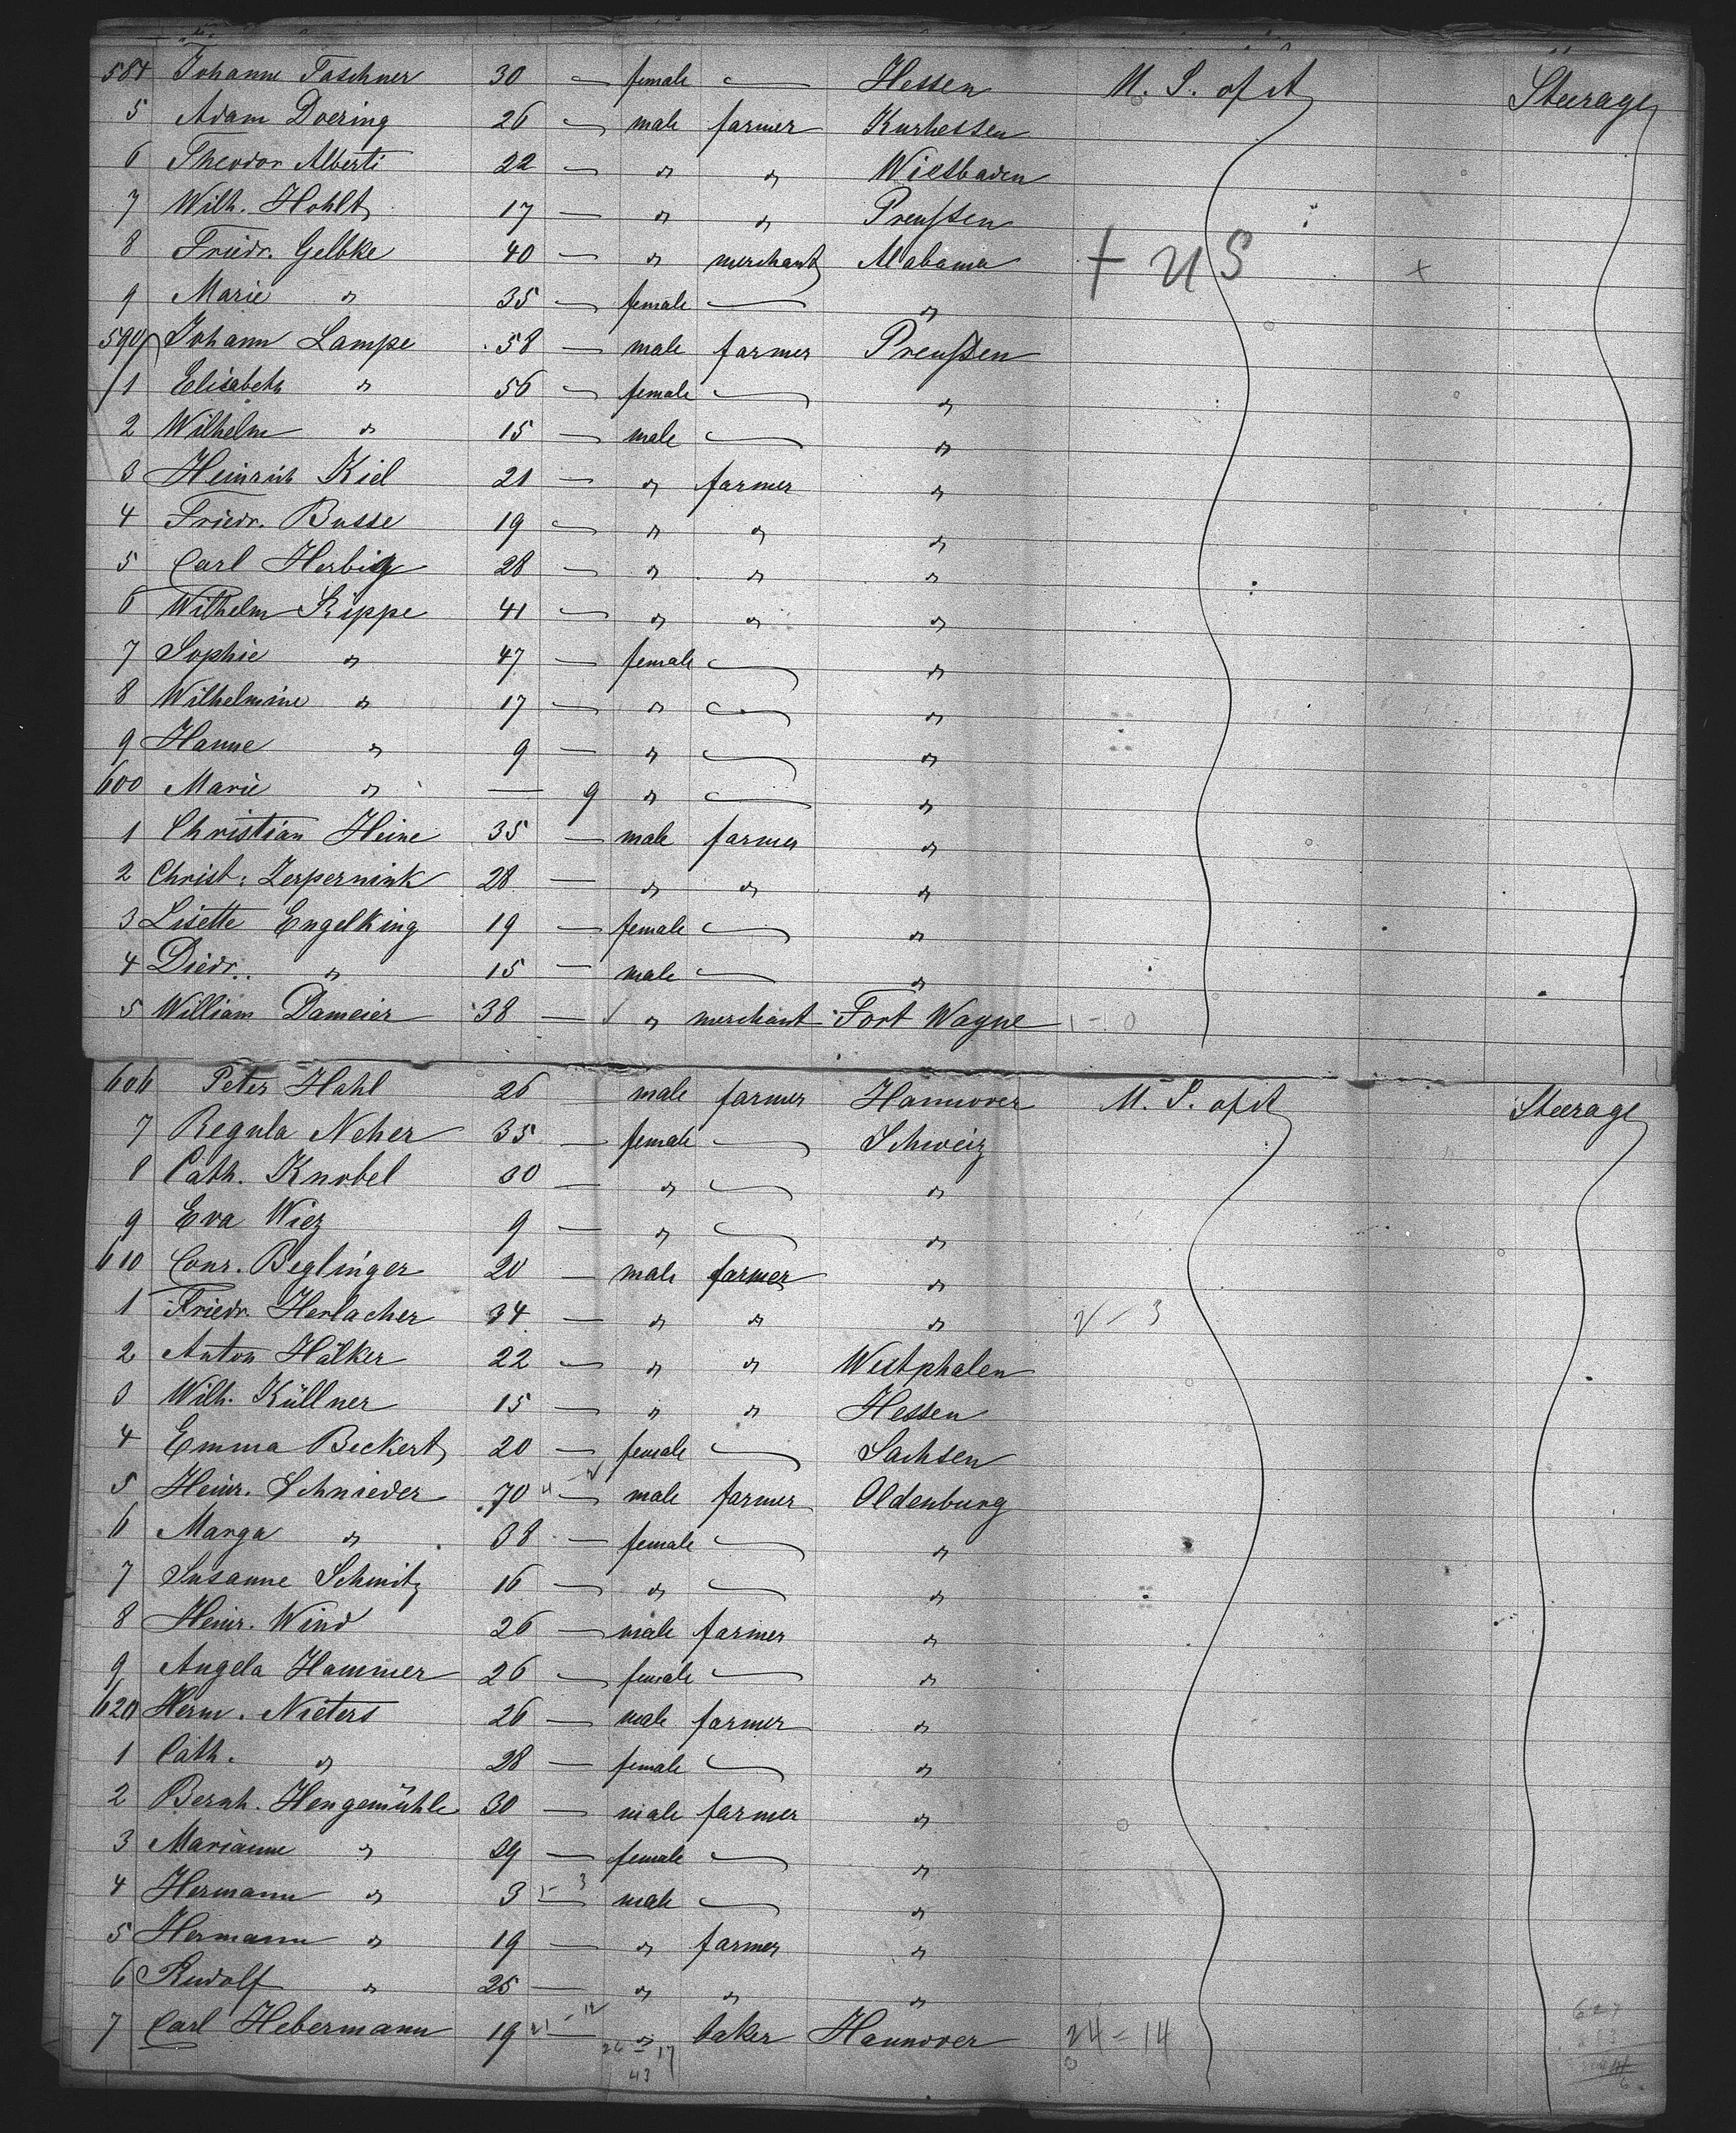 584 Johanne Taschner 30 — female — Hessen M. S. of A Steerage
5 Adam Doering 26 — male farmer Kurhessen
6 Theodor Alberti 22 — " " Wiesbaden
7 Wilh. Hohlt 17 — " " Preußen
8 Friedr. Gelbke 40 — " merchant Alabama + US +
9 Marie " 35 — female — "
590 Johann Lampe 58 — male farmer Preußen
1 Elisabeth " 56 — female — "
2 Wilhelm " 15 — male — "
3 Heinrich Kiel 21 — " farmer "
4 Friedr. Busse 19 — " " "
5 Carl Herbig 28 — " " "
6 Wilhelm Rippe 41 — " " "
7 Sophie " 47 — female — "
8 Wilhelmine " 17 — " — "
9 Hanne " 9 — " — "
600 Marie " — 9 " — "
1 Christian Heine 35 — male farmer "
2 Christ. Zerpernink 28 — " " "
3 Lisette Engelking 19 — female — "
4 Diedr. " 15 — male — "
5 William Dameier 38 — " merchant Fort Wayne 1-0
606 Peter Hahl 26 male farmer Hannover M. S. of A Steerage
7 Regula Neher 35 — female — Schweiz
8 Cath. Knobel 30 — " — "
9 Eva Wiez 9 — " — "
610 Conr. Beglinger 20 — male farmer "
1 Friedr. Herlacher 34 — " " " 2-3
2 Anton Hälker 22 — " " Westphalen
3 Wilh. Küllner 15 — " " Hessen
4 Emma Beckert 20 — female — Sachsen
5 Heinr. Schnieder 70 — male farmer Oldenburg
6 Marga " 38 — female — "
7 Susanne Schmitz 16 — " — "
8 Heinr. Wind 26 — male farmer "
9 Angela Hammer 26 — female — "
620 Herm. Nieters 26 — male farmer "
1 Cath. " 28 — female — "
2 Bernh. Hengemühle 30 — male farmer "
3 Marianne " 29 — female — "
4 Hermann " 3 — 3 male — "
5 Hermann " 19 — " farmer "
6 Rudolf " 25 — " " "
7 Carl Hebermann 19 — " baker Hannover 24-14
26 - 17
43